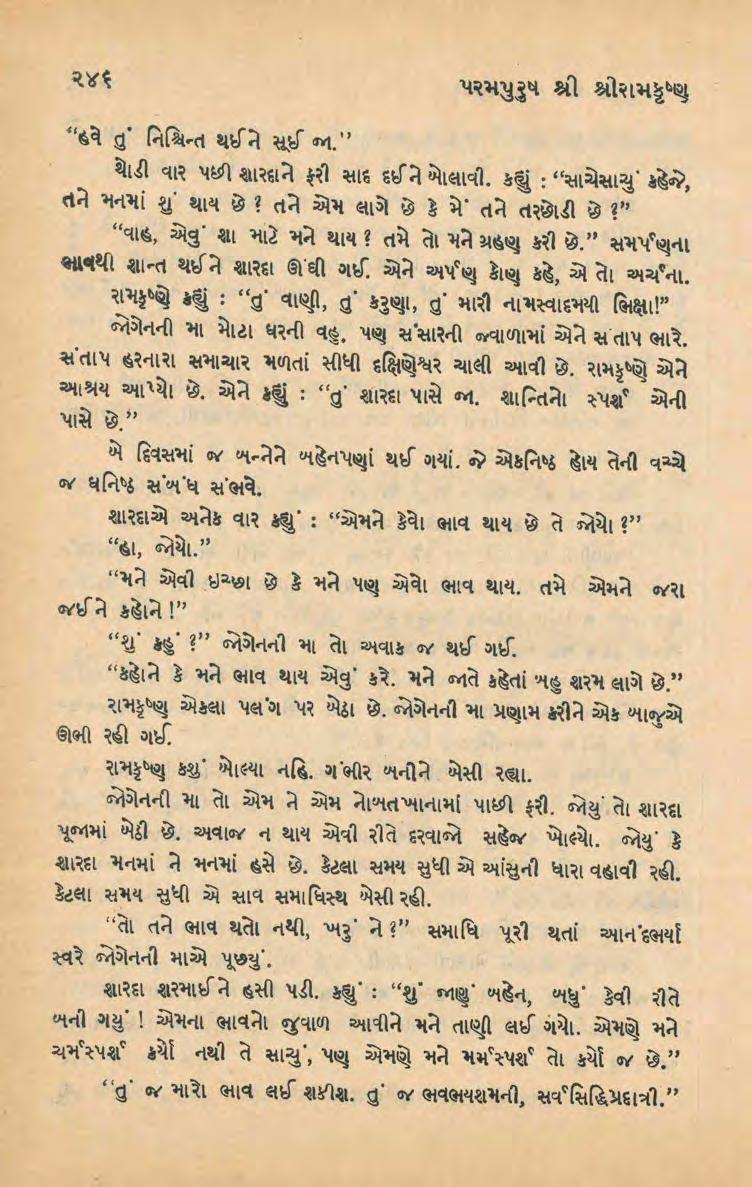 ૨૪૬
પરમપુરુષ શ્રી શ્રીરામકૃષ્ણ
“હવે તું નિશ્ચિન્ત થઈને સૂઈ જા.”
થોડી વાર પછી શારદાને ફરી સાદ દઈને બોલાવી. કહ્યું : “સાચેસાચું કહેજે,
તને મનમાં શું થાય છે ? તને એમ લાગે છે કે મેં તને તરછોડી છે ?”
“વાહ, એવું શા માટે મને થાય ? તમે તો મને ગ્રહણ કરી છે.” સમર્પણના
ભાવથી શાન્ત થઈને શારદા ઊંઘી ગઈ. એને અર્પણ કોણ કહે, એ તો અર્ચના.
રામકૃષ્ણે કહ્યું : “તું વાણી, તું કરુણા, તું મારી નામસ્વાદમયી ભિક્ષા!”
જોગેનની મા મોટા ઘરની વહુ. પણ સંસારની જ્વાળામાં એને સંતાપ ભારે.
સંતાપ હરનારા સમાચાર મળતાં સીધી દક્ષિણેશ્વર ચાલી આવી છે. રામકૃષ્ણે એને
આશ્રય આપ્યો છે. એને કહ્યું : “તું શારદા પાસે જા. શાન્તિનો સ્પર્શ એની
પાસે છે.”
બે દિવસમાં જ બન્નેને બહેનપણાં થઈ ગયાં. જે એકનિષ્ઠ હોય તેની વચ્ચે
જ ઘનિષ્ઠ સંબંધ સંભવે.
શારદાએ અનેક વાર કહ્યું : “એમને કેવો ભાવ થાય છે તે જોયો ?”
“હા, જોયો.”
“મને એવી ઇચ્છા છે કે મને પણ એવો ભાવ થાય. તમે એમને જરા
જઈને કહોને !”
“શું કહું ?” જોગેનની મા તો અવાક જ થઈ ગઈ.
“કહોને કે મને ભાવ થાય એવું કરે. મને જાતે કહેતાં બહુ શરમ લાગે છે.”
રામકૃષ્ણ એકલા પલંગ પર બેઠા છે. જોગેનની મા પ્રણામ કરીને એક બાજુએ
ઊભી રહી ગઈ.
રામકૃષ્ણ કશું બોલ્યા નહિ. ગંભીર બનીને બેસી રહ્યા.
જોગેનની મા તો એમ ને એમ નોબતખાનામાં પાછી ફરી. જોયું તો શારદા
પૂજામાં બેઠી છે. અવાજ ન થાય એવી રીતે દરવાજો સહેજ ખોલ્યો. જોયું કે
શારદા મનમાં ને મનમાં હસે છે. કેટલા સમય સુધી એ આંસુની ધારા વહાવી રહી.
કેટલા સમય સુધી એ સાવ સમાધિસ્થ બેસી રહી.
“તો તને ભાવ થતો નથી, ખરું ને ?” સમાધિ પૂરી થતાં આનંદભર્યા
સ્વરે જોગેનની માએ પૂછયું.
શારદા શરમાઈને હસી પડી. કહ્યું : “શું જાણું બહેન, બધું કેવી રીતે
બની ગયું ! એમના ભાવનો જુવાળ આવીને મને તાણી લઈ ગયો. એમણે મને
ચર્મસ્પર્શ કર્યો નથી તે સાચું, પણ એમણે મને મર્મસ્પર્શ તો કર્યો જ છે.”
“તું જ મારો ભાવ લઈ શકીશ. તું જ ભવભયશમની, સર્વસિદ્ધિપ્રદાત્રી.”